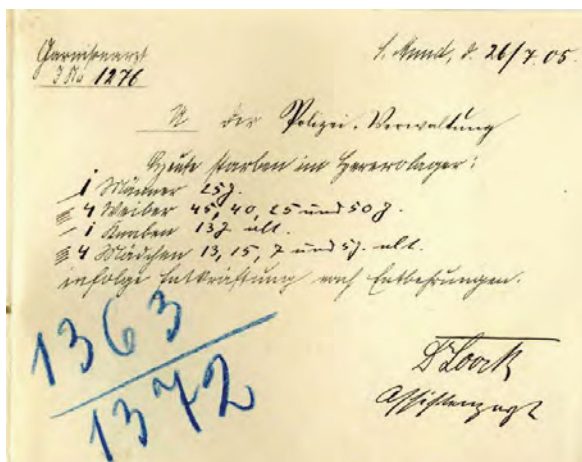 Garnisonarzt
J No 1276
S. Mund, d. 26/7. 05.
U der Polizei-Verwaltung
Heute starben im Hererolager:
1 Männer 25 J.
4 Weiber 45, 40, 25 und 50 J.
1 Knaben 13 J alt.
4 Mädchen 13, 15, 7 und 5 J. alt.
infolge Entkräftung nach Entbehrungen.
1363
1372
Dr Loock
Assistenzarzt